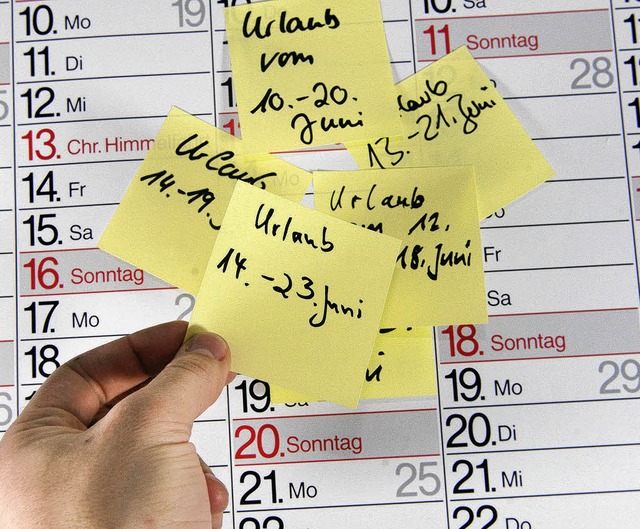 10. Mo 19
11. Di
12. Mi
13. Chr. Himm
14. Fr
15. Sa
16. Sonntag
17. Mo
18.
Urlaub
vom
10.-20.
Juni
13.-21. Juni
Urlaub
14.-19.
Urlaub
12.
18. Juni
Urlaub
14.-23. Juni
19. Sa
20. Sonntag
21. Mo 25
22
10. Sa
11 Sonntag
28
Fr
Sa
18. Sonntag
19. Mo 29
20. Di
21. Mi
22 Do